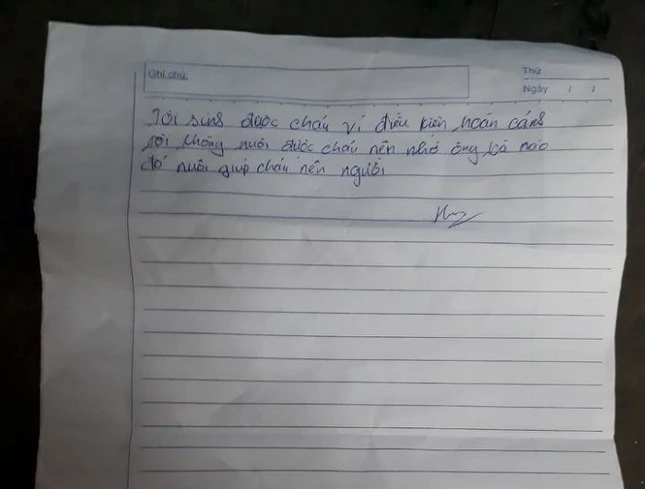 Ghi chú:
Thứ
Ngày / /
Tôi sing được cháu vì điều kiện hoàn cảng
tôi không nuôi được cháu nên nhờ ông bà nào
đó nuôi giúp cháu nên người